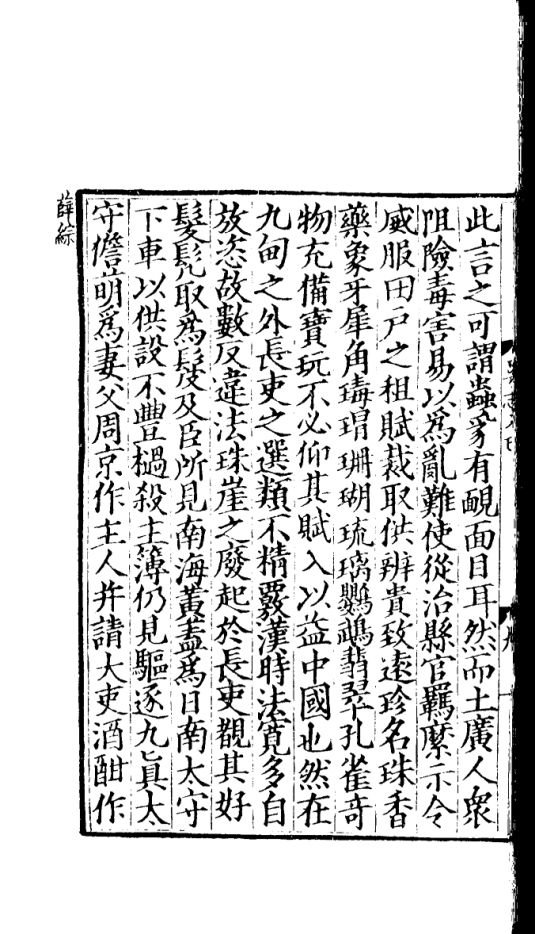 此言之可謂蟲豸有靦面目耳然而土廣人衆
阻險毒害易以爲亂難使從治縣官羈縻示令
威服田戶之租賦裁取供辨貴致遠珍名珠香
藥象牙犀角瑇瑁珊瑚琉璃鸚鵡翡翠孔雀奇
物充備寶玩不必仰其賦入以益中國也然在
九甸之外長吏之選類不精覈漢時法寬多自
放恣故數反違法珠崖之廢起於長吏覩其好
髮髡取爲髲及臣所見南海黃蓋爲日南太守
下車以供設不豐檛殺主簿仍見驅逐九眞太
守儋萌爲妻父周京作主人幷請大吏酒酣作
薛綜